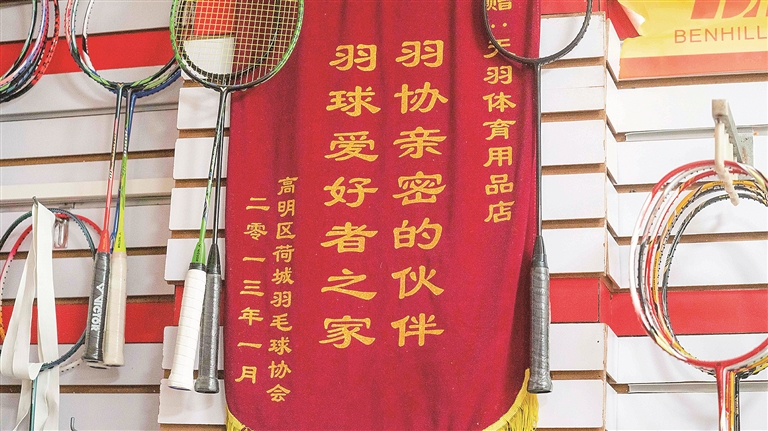 赠：羽体育用品店
羽协亲密的伙伴
羽球爱好者之家
高明区荷城羽毛球协会
二零一三年一月
BENHILL
VICTOR